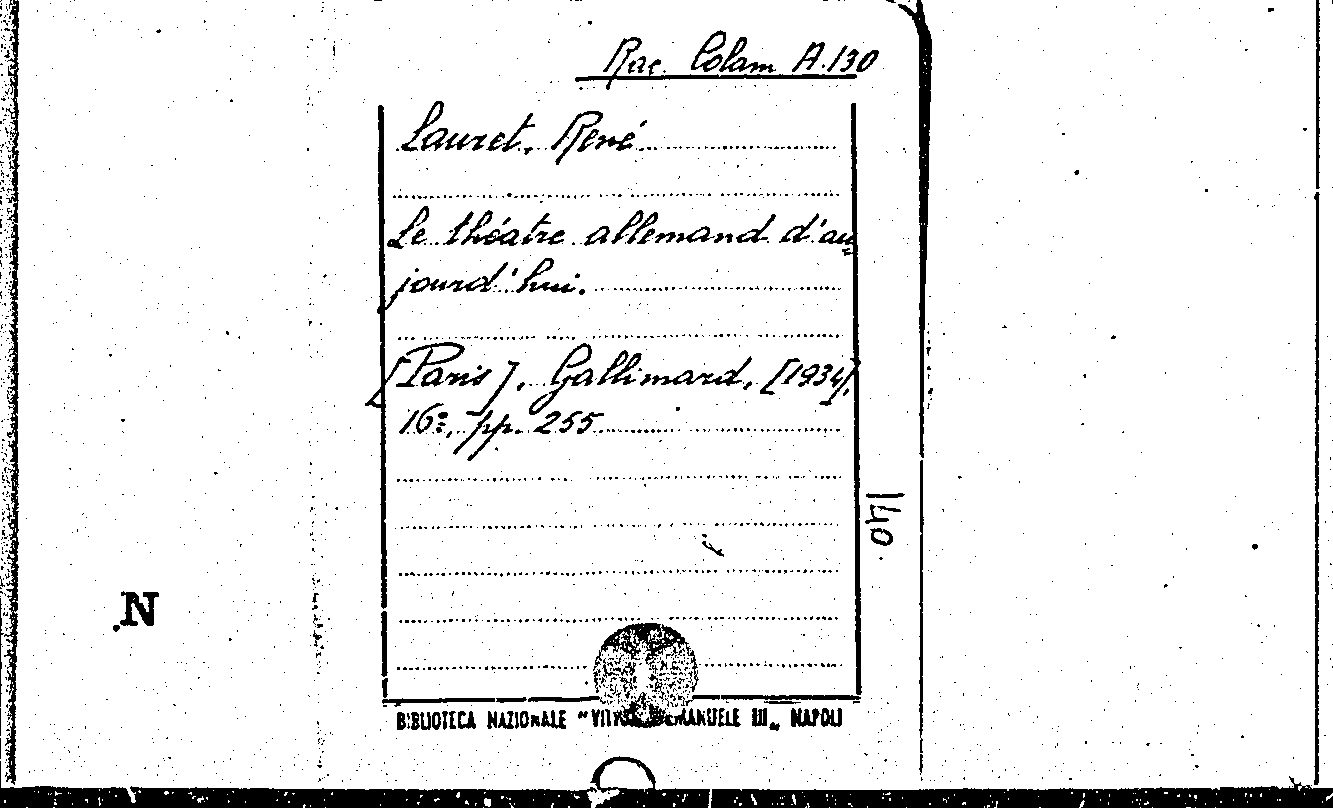 Rac. Colam A.130
Lauret, René
Le théatre allemand d'au=
jourd'hui.
[Paris], Gallimard, [1934],
16º, pp. 255
140
N
BIBLIOTECA NAZIONALE "VITTORIO EMANUELE III„ NAPOLI